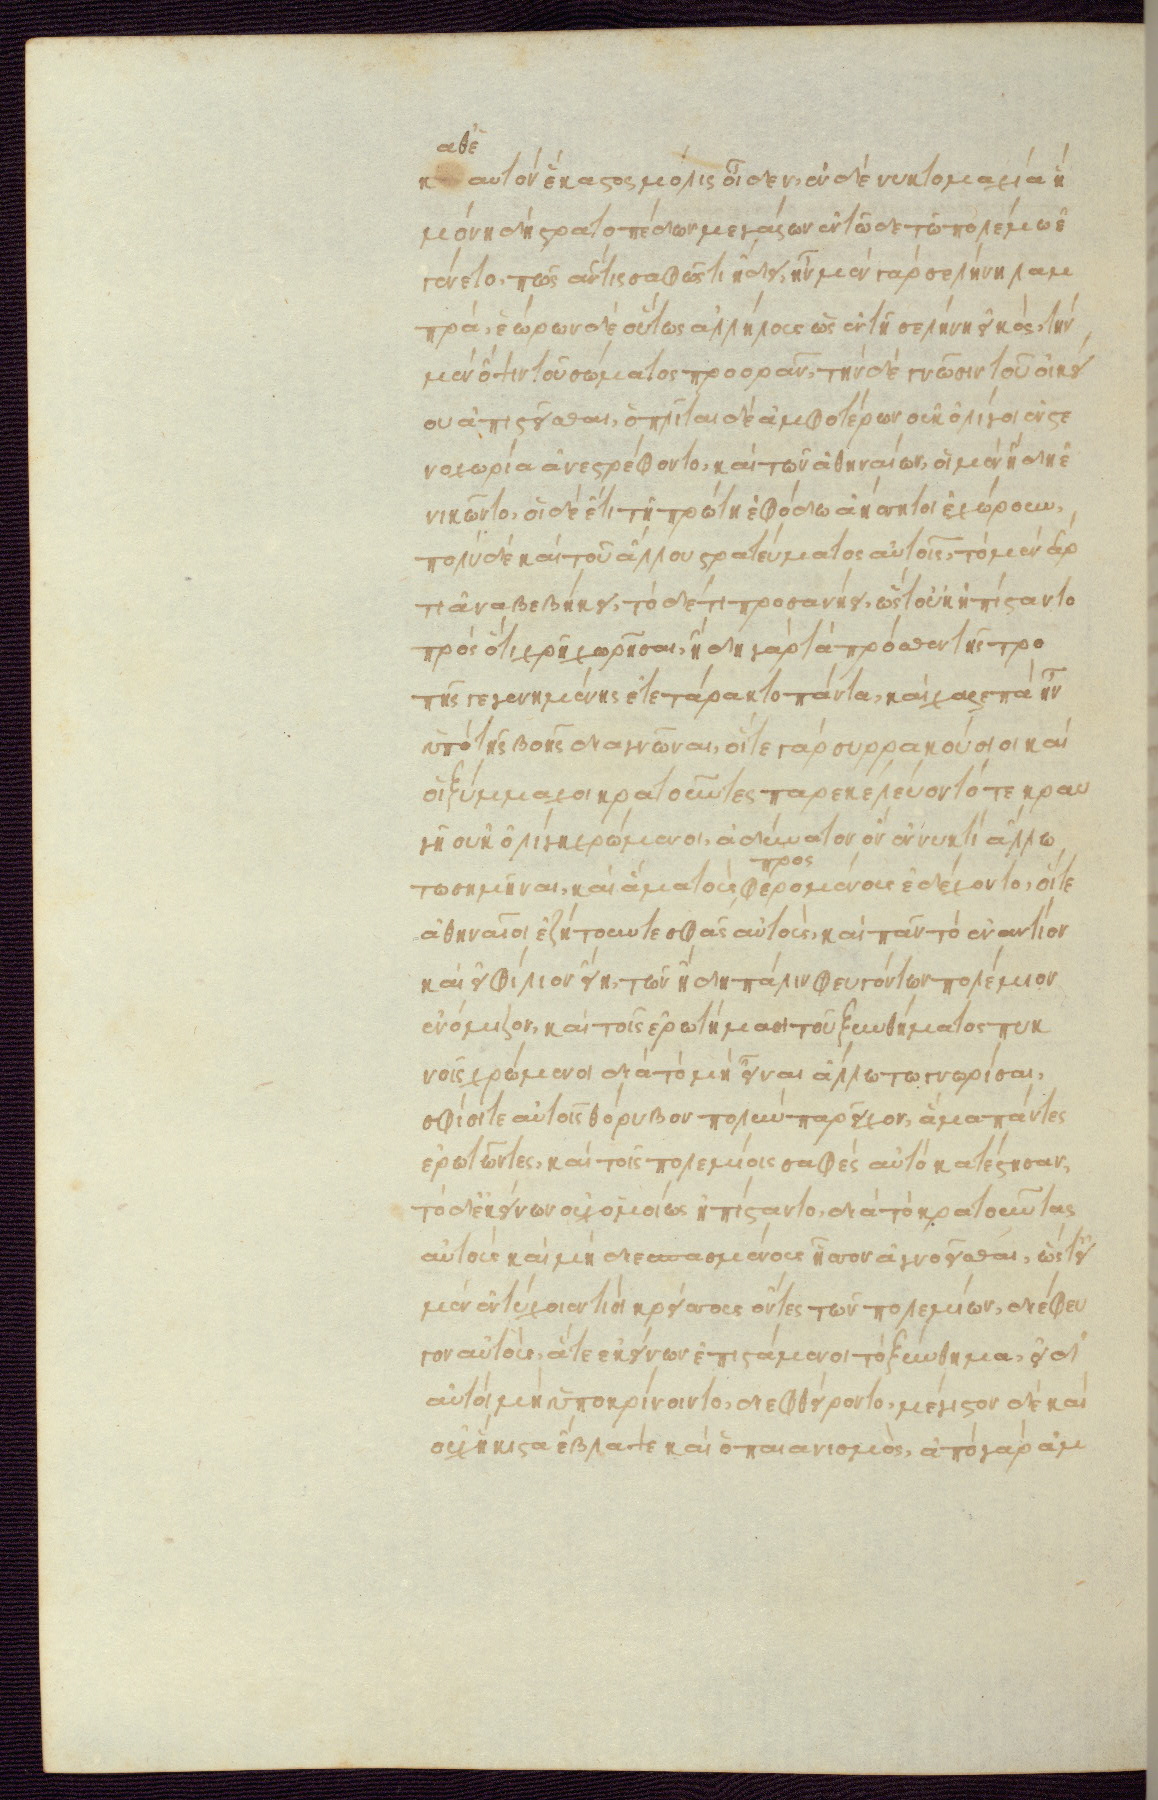 αθ' ἑ
κ αυτὸν ἕκαστος μόλις οἶδεν, ἐν δὲ νυκτομαχία ἣ
μόνη δὴ στρατοπέδων μεγάλων ἐν τῶδε τῶ πολέμω ἐ
γένετο, πῶς ἄν τις σαφῶς τι ἤδει, ἦν μὲν γὰρ σελήνη λαμ
πρά, ἑώρων δὲ οὕτως ἀλλήλους ὡς ἐν τῆ σελήνη εἰκός, τὴν
μὲν ὄψιν τοῦ σώματος προορᾶν, τὴν δὲ γνῶσιν τοῦ οἰκεί
ου ἀπιστεῖσθαι, ὁπλῖται δὲ ἀμφοτέρων οὐκ ὀλίγοι ἐν στε
νοχωρία ἀνεστρέφοντο, καὶ τῶν ἀθηναίων, οἱ μὲν ἤδη ἐ
νικῶντο, οἱ δὲ ἔτι τῆ πρώτη ἐφόδω ἀήσσητοι ἐχώρουν,
πολὺ δὲ καὶ τοῦ ἄλλου στρατεύματος αὐτοῖς, τὸ μὲν ἄρ
τι ἀναβεβήκει, τὸ δ' ἔτι προσανήει, ὥστ' οὐκ ἠπίσταντο
πρὸς ὅτι χρὴ χωρῆσαι, ἤδη γὰρ τὰ πρόσθεν τῆς τρο
πῆς γεγενημένης ἐτετάρακτο πάντα, καὶ χαλεπὰ ἦν
ὑπὸ τῆς βοῆς διαγνῶναι, οἵ τε γὰρ συρρακούσιοι καὶ
οἱ ξύμμαχοι κρατοῦντες παρεκελεύοντό τε κραυ
γῆ οὐκ ὀλίγη χρώμενοι, ἀδύνατον ὂν ἐν νυκτὶ ἄλλω
τω σημῆναι, καὶ ἅμα τοὺς προσφερομένους ἐδέχοντο, οἵ τε
ἀθηναῖοι ἐζήτουν τε σφᾶς αὐτούς, καὶ πᾶν τὸ ἐναντίον
καὶ εἰ φίλιον εἴη, τῶν ἤδη πάλιν φευγόντων πολέμιον
ἐνόμιζον, καὶ τοῖς ἐρωτήμασι τοῦ ξυνθήματος πυκ
νοῖς χρώμενοι διὰ τὸ μὴ εἶναι ἄλλω τω γνωρίσαι,
σφίσι τε αὐτοῖς θόρυβον πολὺν παρεῖχον, ἅμα πάντες
ἐρωτῶντες, καὶ τοῖς πολεμίοις σαφὲς αὐτὸ κατέστησαν,
τὸ δ' ἐκείνων οὐχ ὁμοίως ἠπίσταντο, διὰ τὸ κρατοῦντας
αὐτοὺς καὶ μὴ διεσπασμένους ἧσσον ἀγνοεῖσθαι, ὥστ' εἰ
μὲν ἐντύχοιέν τισι κρείσσους ὄντες τῶν πολεμίων, διέφευ
γον αὐτούς, ἅτε ἐκείνων ἐπιστάμενοι τὸ ξύνθημα, εἰ δ'
αὐτοὶ μὴ ὑποκρίνοιντο, διεφθείροντο, μέγιστον δὲ καὶ
οὐχ ἥκιστα ἔβλαψε καὶ ὁ παιανισμὸς, ἀπὸ γὰρ ἀμ